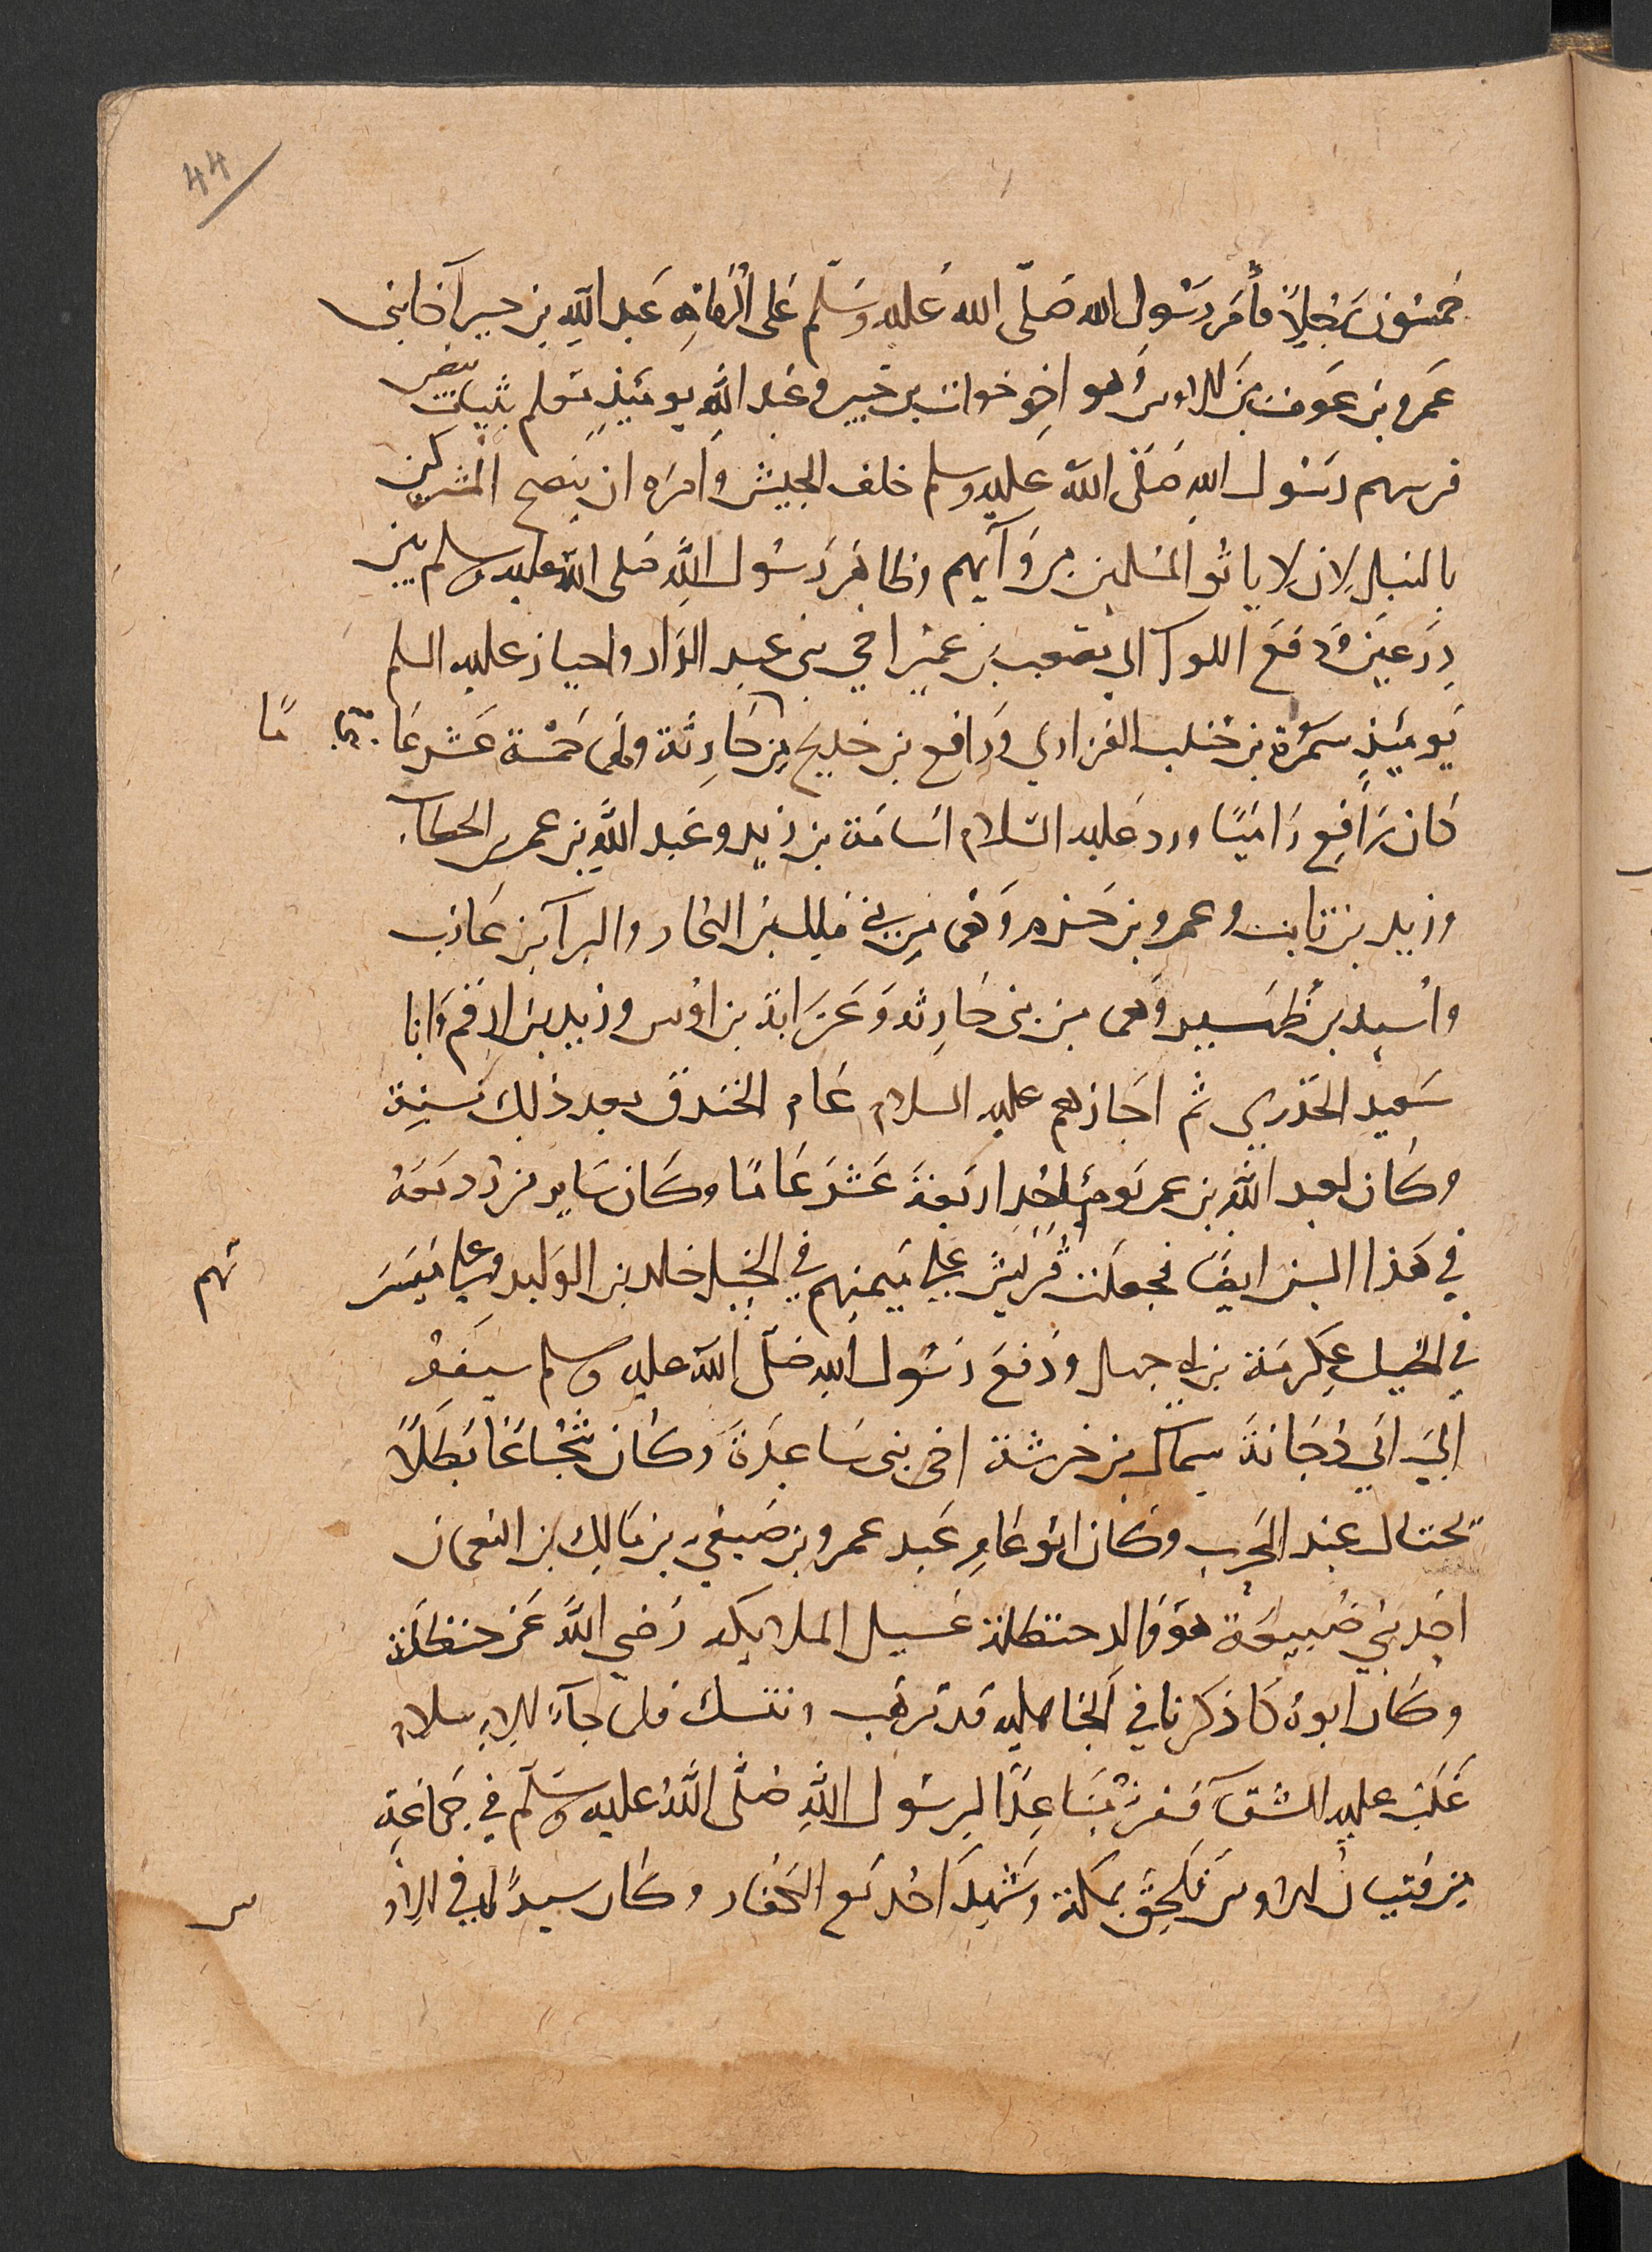 44
خمسُون رَجُلاً فأمَر رسُول الله صَلّى الله عَليه وسَلّم عَلى الرُمَاةِ عَبد اللَّهِ بن جبير آخَا بنى
عَمرو بن عَوف بن الاوس وَهو اخو خوات بن جبير وعَبد اللَّهِ يومَئِذٍ معلم بثياب بيض
فرتبهم رسُول اللهِ صَلّى اللّه عَليه وسلم خلف الجيش وَامرَه ان ينضح المشركين
بالنبل لان لا ياتوا المسلمين من ورآيهم وظاهَر رَسُول اللَّهِ صَلى اللَّه عليه وسلم بين
دِرعَين وَدفعَ اللوآ الى مصعب بن عمير اخي بني عبد الدار واجاز عليه السلم
يَومَئِذٍ سَمُرَة بن جندب الفزاري وَرَافع بن خديج من حَارِثَة ولهمَا خمسَة عَشر عَامًا
كان رَافع رَاميًا ورد عَليه السّلام اسَامَة بن زيد وعَبد اللَّهِ بن عمر بن الخطاب
وزيد بن ثابت وعمرو بن حَزم وَهمَا من بني مالك بن النجار والبرآ بن عَازب
واسيد بن ظُهَيير وَهما من بنى حَارِثَه وَعَرَابَة بن اوس وزيد بن ارقم وَابا
سَعيد الخُدرى ثم اجَازهم عليه السلام عَام الخندق بعد ذلك بسَنة
وكَان لعبد اللَّهِ بن عمر يَوم احُدٍ اربَعَة عَشَر عَامًا وكَان سَاير من رُد مَعَهُ
في هَذا السن ايضًا فجعَلت قُرَيش على ميمنتهم في الخيل خالد بن الوَليد وعلى ميسَرَتهم
في الخيل عِكرمَة بن ابي جهل ودَفعَ رسُول اللهِ صَلّى اللّه عليه وسلم سَيفهُ
الى ابي دُجَانَة سِمَاك بن خرشة اخى بنى سَاعدَة وكَان شُجَاعًا بَطَلاً
يختال عِند الحَرب وكَان ابُو عَامِر عَبد عمرو بن صَيفي بن مَالِك بن النعمان
احَد بَني ضُبيعَة هوَ وَالد حنظلة غسيل الملايكه رَضي اللَّه عَن حنظلَة
وكَان ابوهُ كمَا ذكرنا في الجَاهليه قد ترهَب وتنسك فلما جآءَ الاسلام
غَلبَ عليه الشقآ ففر مبَاعِدًا لرسُول اللَّهِ صَلَّى اللَّهُ عليه وسَلّم في جماعَةٍ
من فتيان الاوس فَلَحِقَ بمكة وَشَهِدَ احُد مع الكفار وكَان سيدًا في الاوس